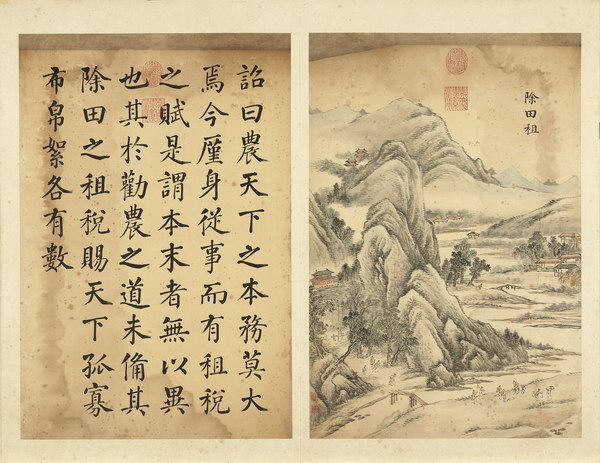 除田租
詔曰農天下之本務莫大
焉今廑身從事而有租稅
之賦是謂本末者無以異
也其於勸農之道未備其
除田之租稅賜天下孤寡
布帛絮各有數